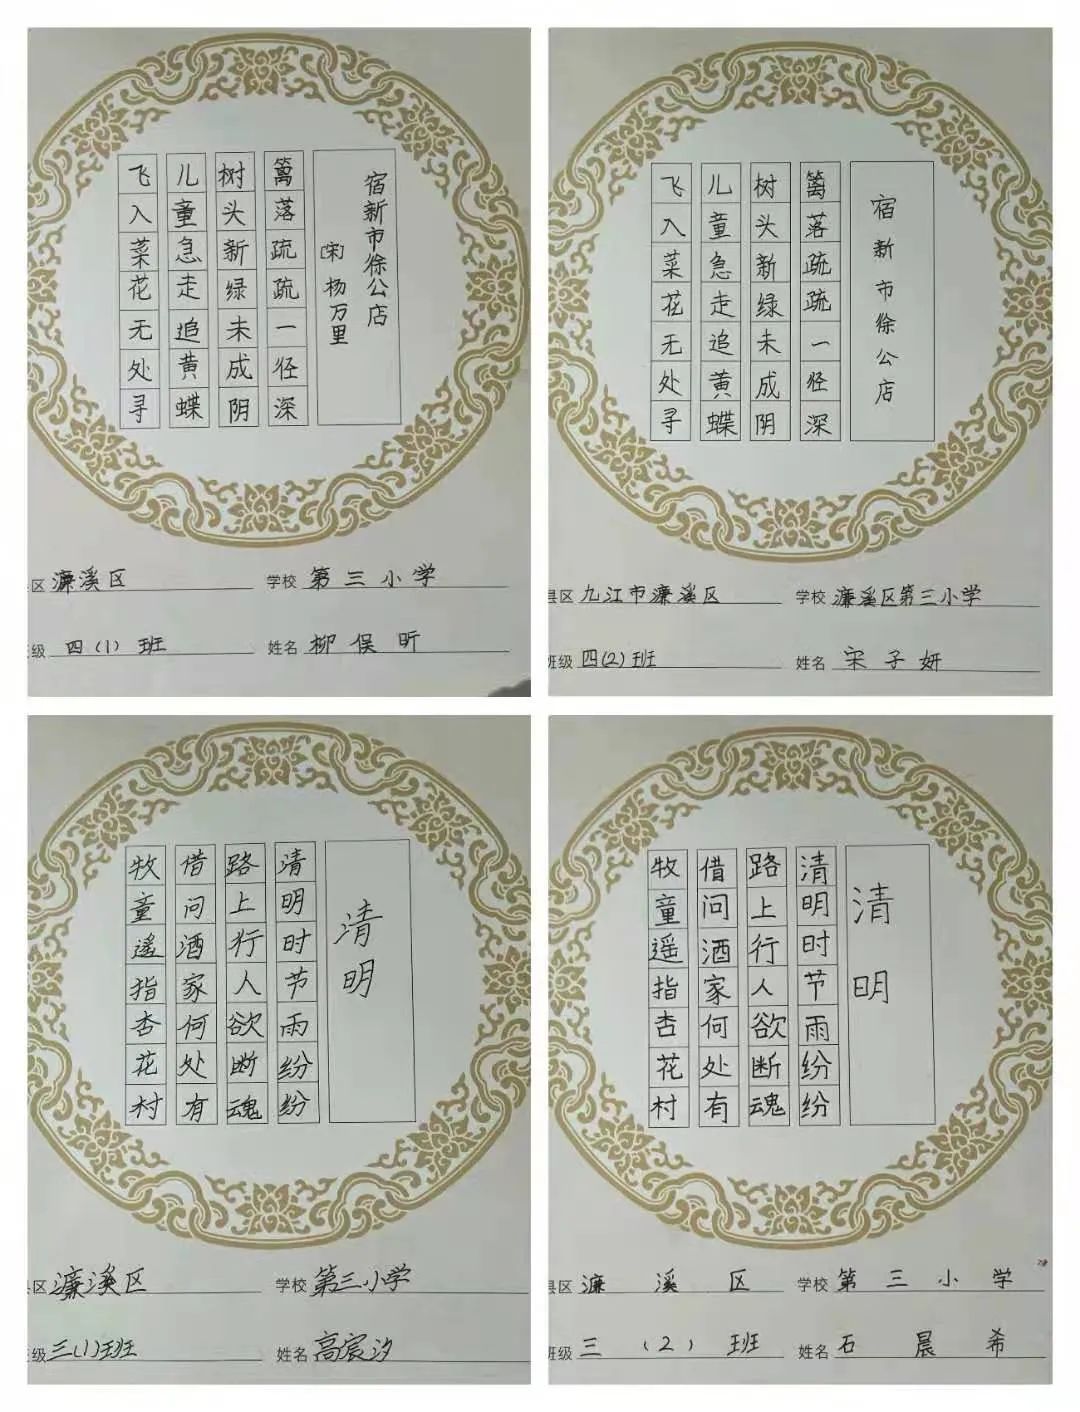 宿新市徐公店
[宋]杨万里
篱落疏疏一径深
树头新绿未成阴
儿童急走追黄蝶
飞入菜花无处寻
区 濂溪区 学校 第三小学
级 四(1)班 姓名 柳俣昕
宿新市徐公店
篱落疏疏一径深
树头新绿未成阴
儿童急走追黄蝶
飞入菜花无处寻
县区 九江市濂溪区 学校 濂溪区第三小学
班级 四(2)班 姓名 宋子妍
清明
清明时节雨纷纷
路上行人欲断魂
借问酒家何处有
牧童遥指杏花村
县区 濂溪区 学校 第三小学
班级 三(1)班 姓名 高宸汐
清明
清明时节雨纷纷
路上行人欲断魂
借问酒家何处有
牧童遥指杏花村
县区 濂溪区 学校 第三小学
班级 三(2)班 姓名 石晨希